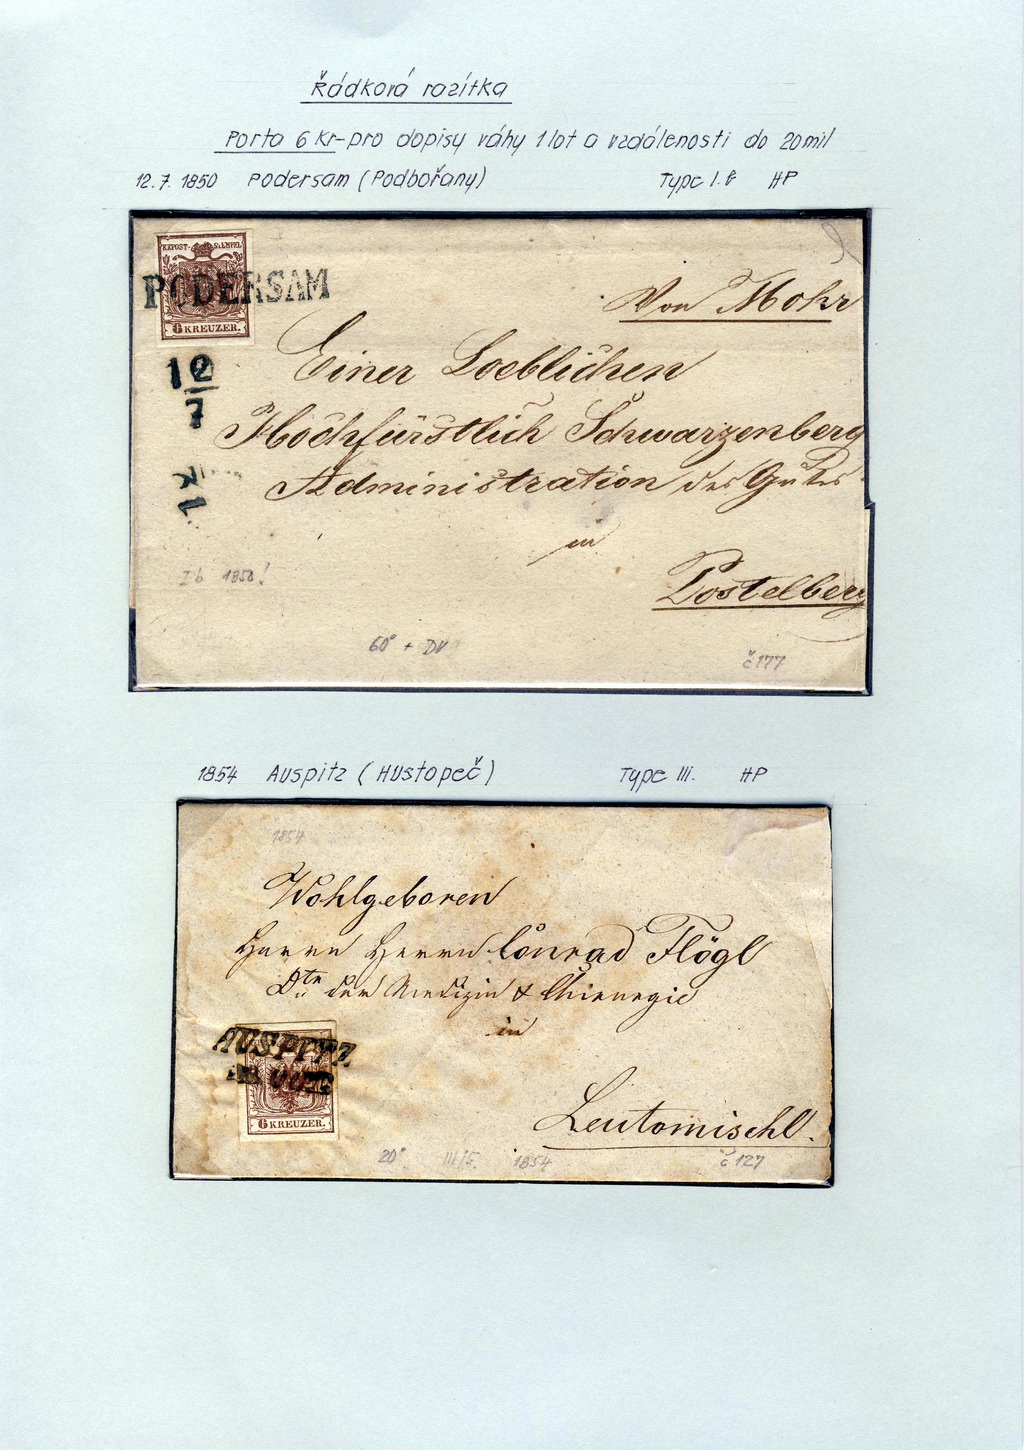 Řádková razítka
Porto 6 Kr-pro dopisy váhy 1 lot a vzdálenosti do 20 mil
12.7. 1850 Podersam (Podbořany) Type I.b HP
KKPOST-STEMPEL
PODERSAM
6 KREUZER.
12
7
Von Mohr
Einer Loeblichen
Hochfürstlich Schwarzenberg
Administration des Gutes
in
Postelberg
Ib 1850!
60° + DV
č 177
1854 Auspitz (Hustopeč) Type III. HP
1854
Wohlgeboren
Herrn Herrn Conrad Flögl
Dtr der Medizin & Chirurgie
in
AUSPITZ
6 KREUZER.
Leutomischl.
20° III/5. 1854
č 127